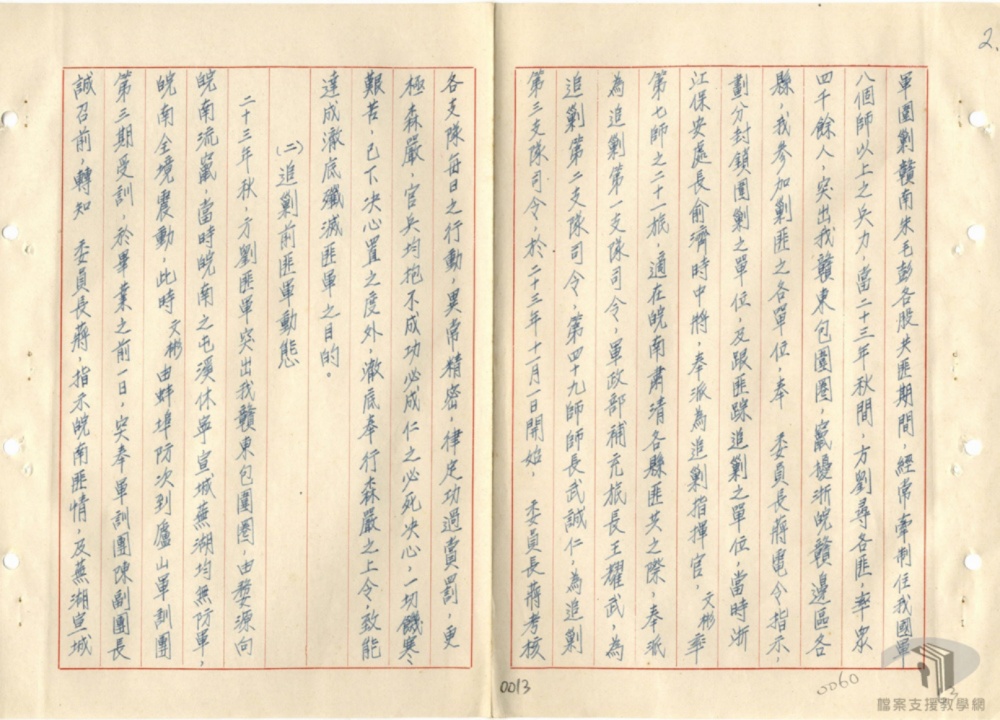 2.
軍圍剿贛南朱毛彭各股共匪期間，經常牽制住我國軍
八個師以上之兵力，當二十三年秋間，方劉尋各匪，率眾
四千餘人，突出我贛東包圍圈，竄擾浙皖贛邊區各
縣，我參加剿匪之各單位，奉　委員長蔣電令指示，
劃分封鎖圍剿之單位，及跟匪踪追剿之單位，當時浙
江保安處長俞濟時中將，奉派為追剿指揮官，文彬率
第七師之二十一旅，適在皖南肅清各縣匪共之際，奉派
為追剿第一支隊司令，軍政部補充旅長王耀武，為
追剿第二支隊司令，第四九師師長武誠仁，為追剿
第三支隊司令，於二十三年十一月一日開始，　委員長蔣考核
各支隊每日之行動，異常精密，律定功過賞罰，更
極森嚴，官兵均抱不成功必成仁之必死決心，一切饑寒、
艱苦，已下決心置之度外，澈底奉行森嚴之上令，致能
達成澈底殲滅匪軍之目的。
(二)追剿前匪軍動態
二十三年秋，方劉匪軍突出我贛東包圍圈，由婺源向
皖南流竄，當時皖南之屯溪休寧宣城蕪湖均無防軍，
皖南全境震動，此時文彬由蚌埠防次到廬山軍訓團
第三期受訓，於畢業之前一日，突奉軍訓團陳副團長
誠召前，轉知　委員長蔣，指示皖南匪情，及蕪湖宣城
0013
0060
檔案支援教學網